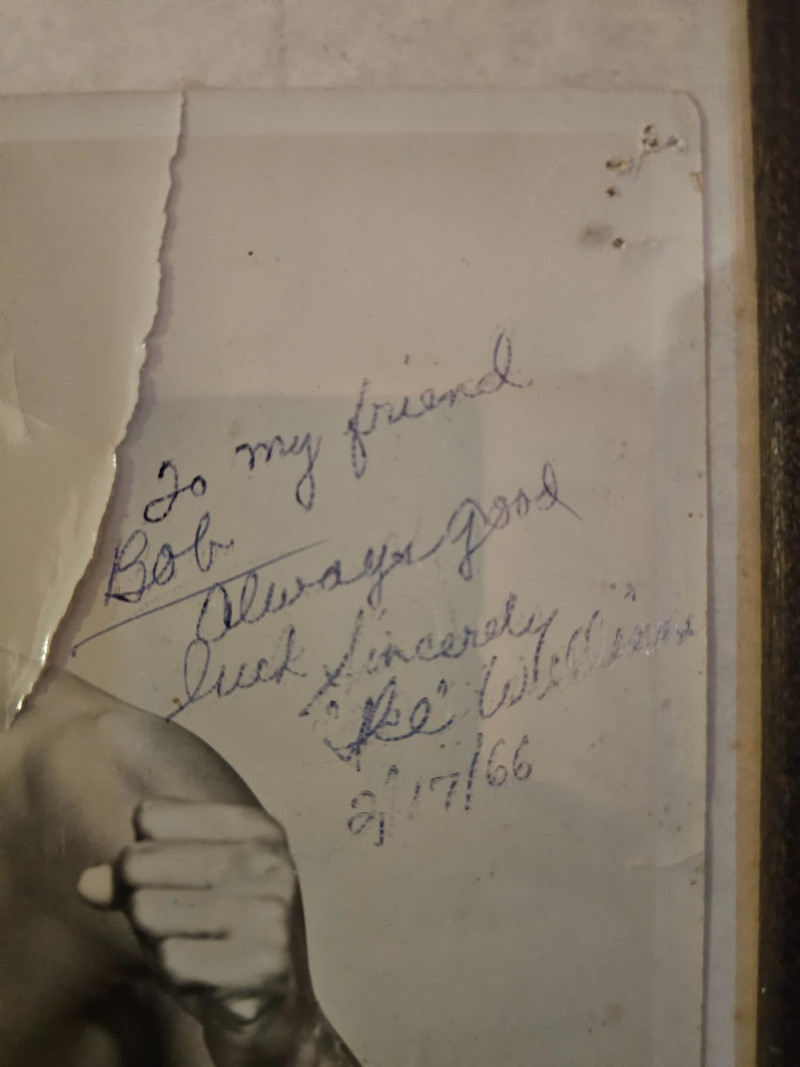 To my friend
Bob
Always good
luck Sincerely
"Ike" Williams
2/17/66